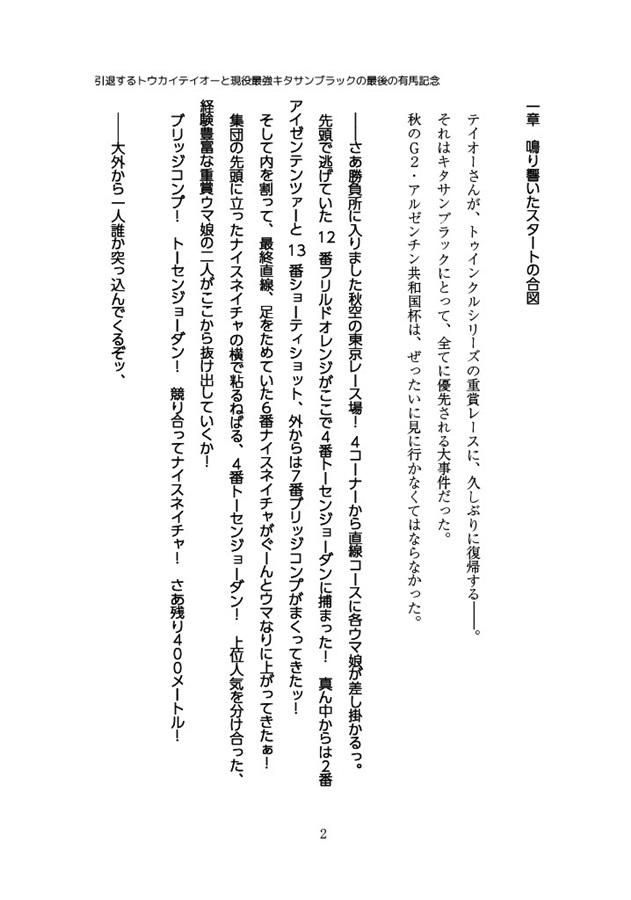 引退するトウカイテイオーと現役最強キタサンブラックの最後の有馬記念
一章　鳴り響いたスタートの合図
テイオーさんが、トゥインクルシリーズの重賞レースに、久しぶりに復帰する――。
それはキタサンブラックにとって、全てに優先される大事件だった。
秋のG2・アルゼンチン共和国杯は、ぜったいに見に行かなくてはならなかった。
――さあ勝負所に入りました秋空の東京レース場！　4コーナーから直線コースに各ウマ娘が差し掛かるっ。
先頭で逃げていた 12 番フリルドオレンジがここで4番トーセンジョーダンに捕まった！　真ん中からは2番
アイゼンテンツァーと 13 番ショーティショット、外からは7番ブリッジコンプがまくってきたッ！
そして内を割って、最終直線、足をためていた6番ナイスネイチャがぐーんとウマなりに上がってきたぁ！
集団の先頭に立ったナイスネイチャの横で粘るねばる、4番トーセンジョーダン！　上位人気を分け合った、
経験豊富な重賞ウマ娘の二人がここから抜け出していくか！
ブリッジコンプ！　トーセンジョーダン！　競り合ってナイスネイチャ！　さあ残り400メートル！
――大外から一人誰か突っ込んでくるぞッ、
2